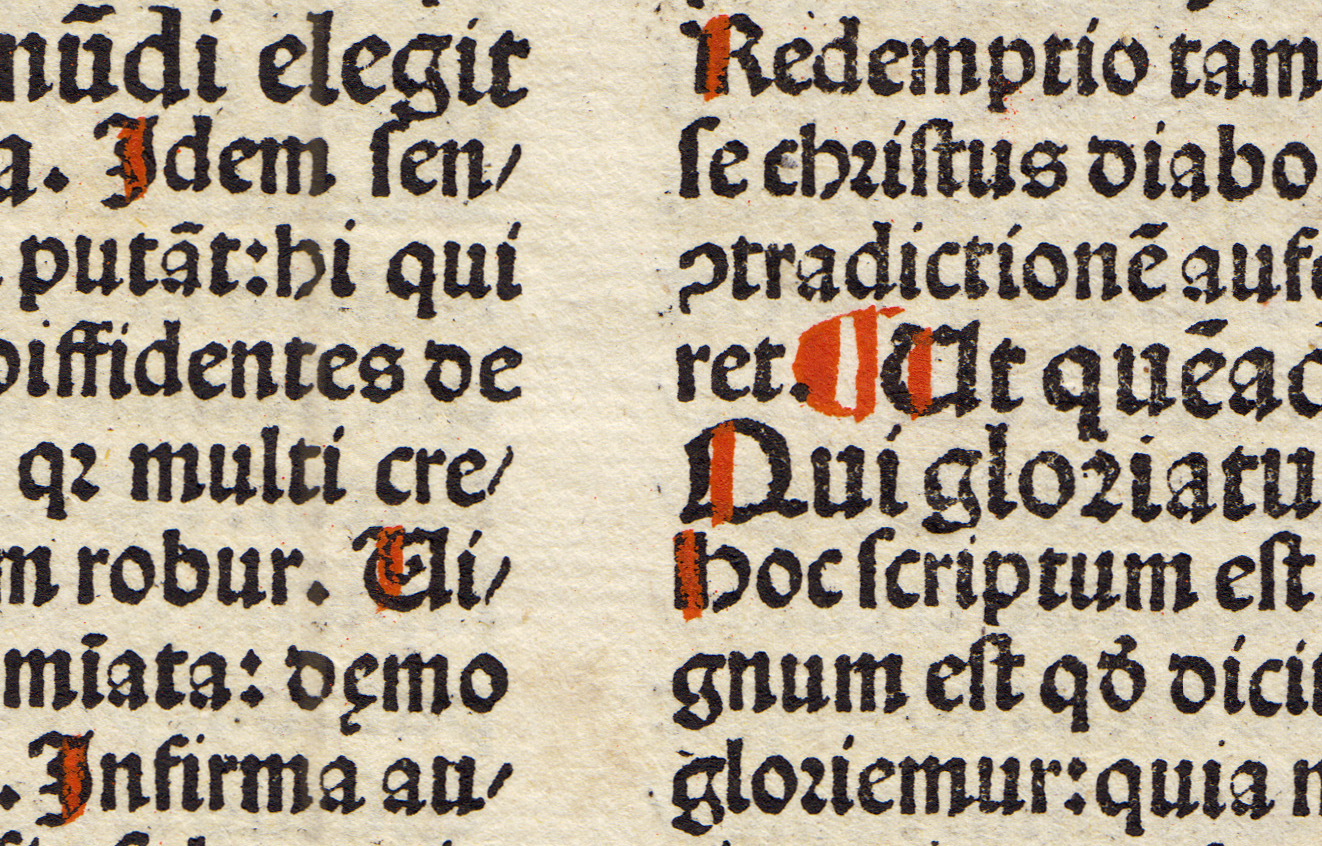 nūdi elegit
a. Idem ſen/
putāt: hi qui
diffidentes de
qꝛ multi cre/
m robur. Eli/
mīata: dęmo
. Infirma au/
Redemptio tam
ſe chꝛiſtus diabo
ꝯtradictionē aufe
ret. ¶ Ut quēad
Qui gloꝛiatu
hoc ſcriptum eſt
gnum eſt qđ dicit
gloꝛiemur: quia n